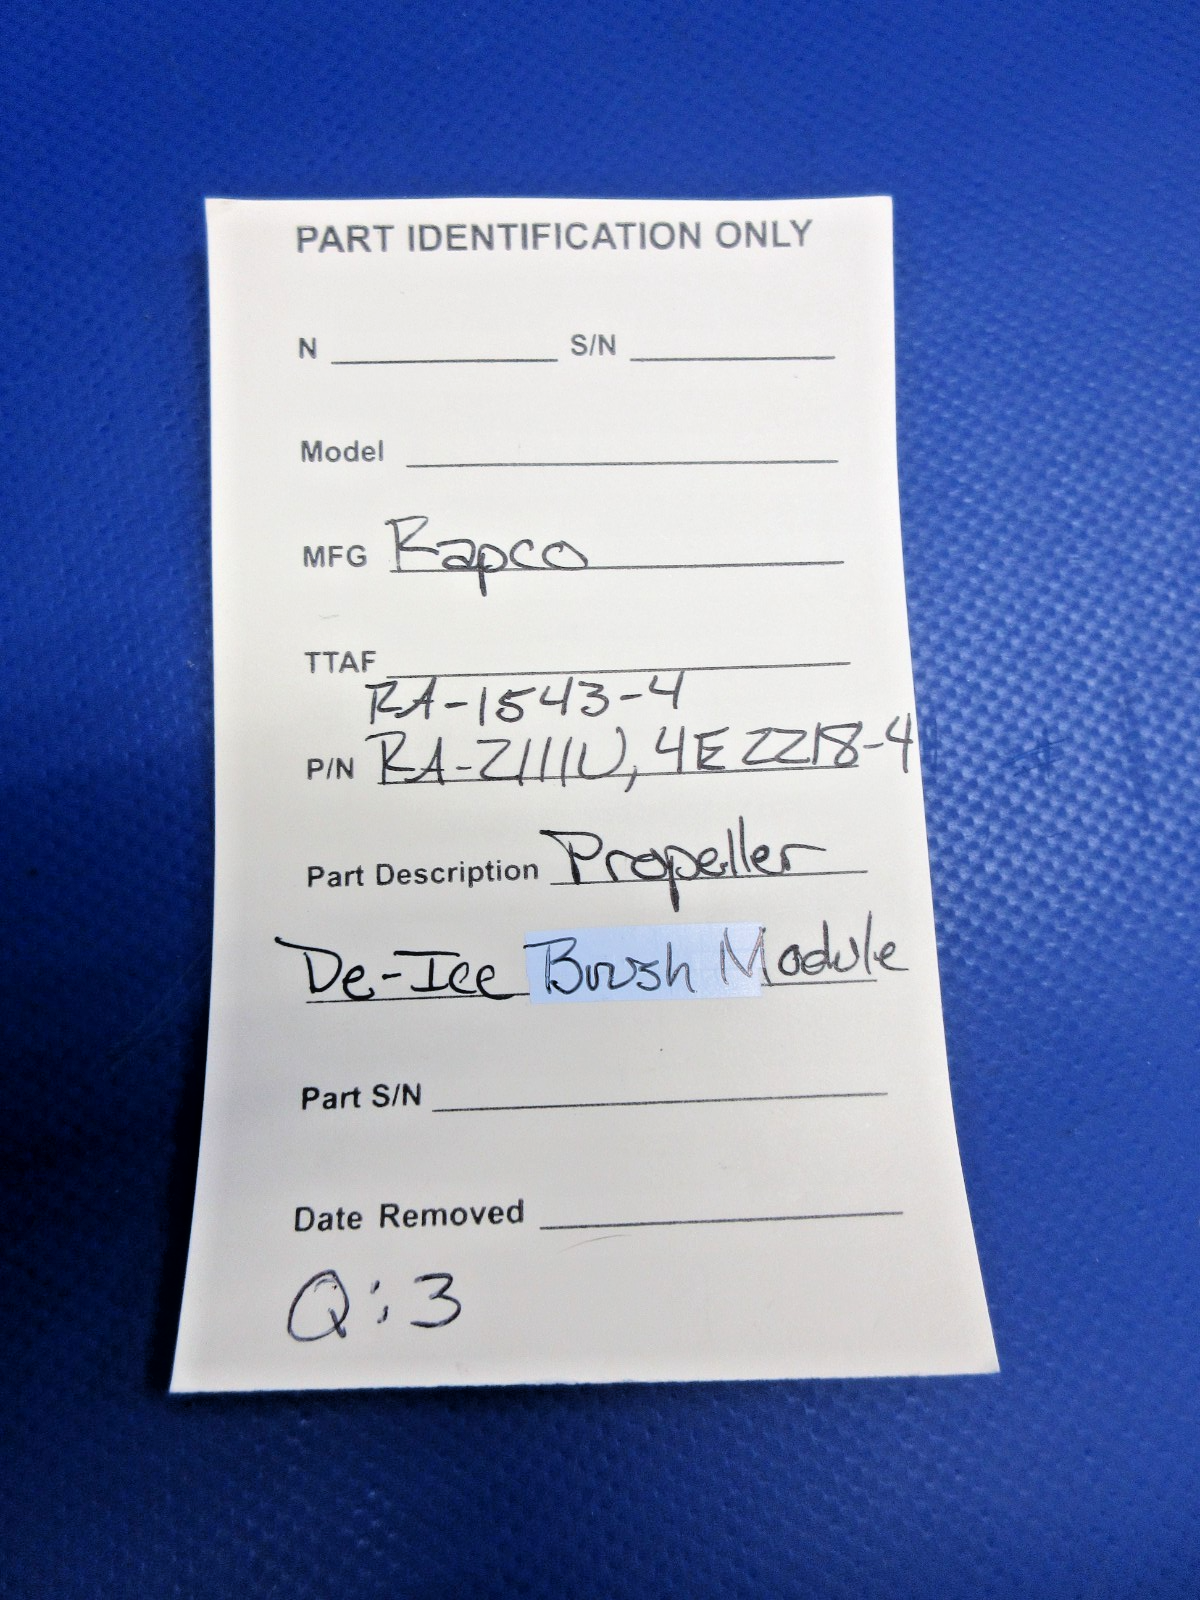 PART IDENTIFICATION ONLY
N S/N
Model
MFG Rapco
TTAF
RA-1543-4
P/N RA-2111U, 4E2218-4
Part Description Propeller
De-Ice Brush Module
Part S/N
Date Removed
Q: 3